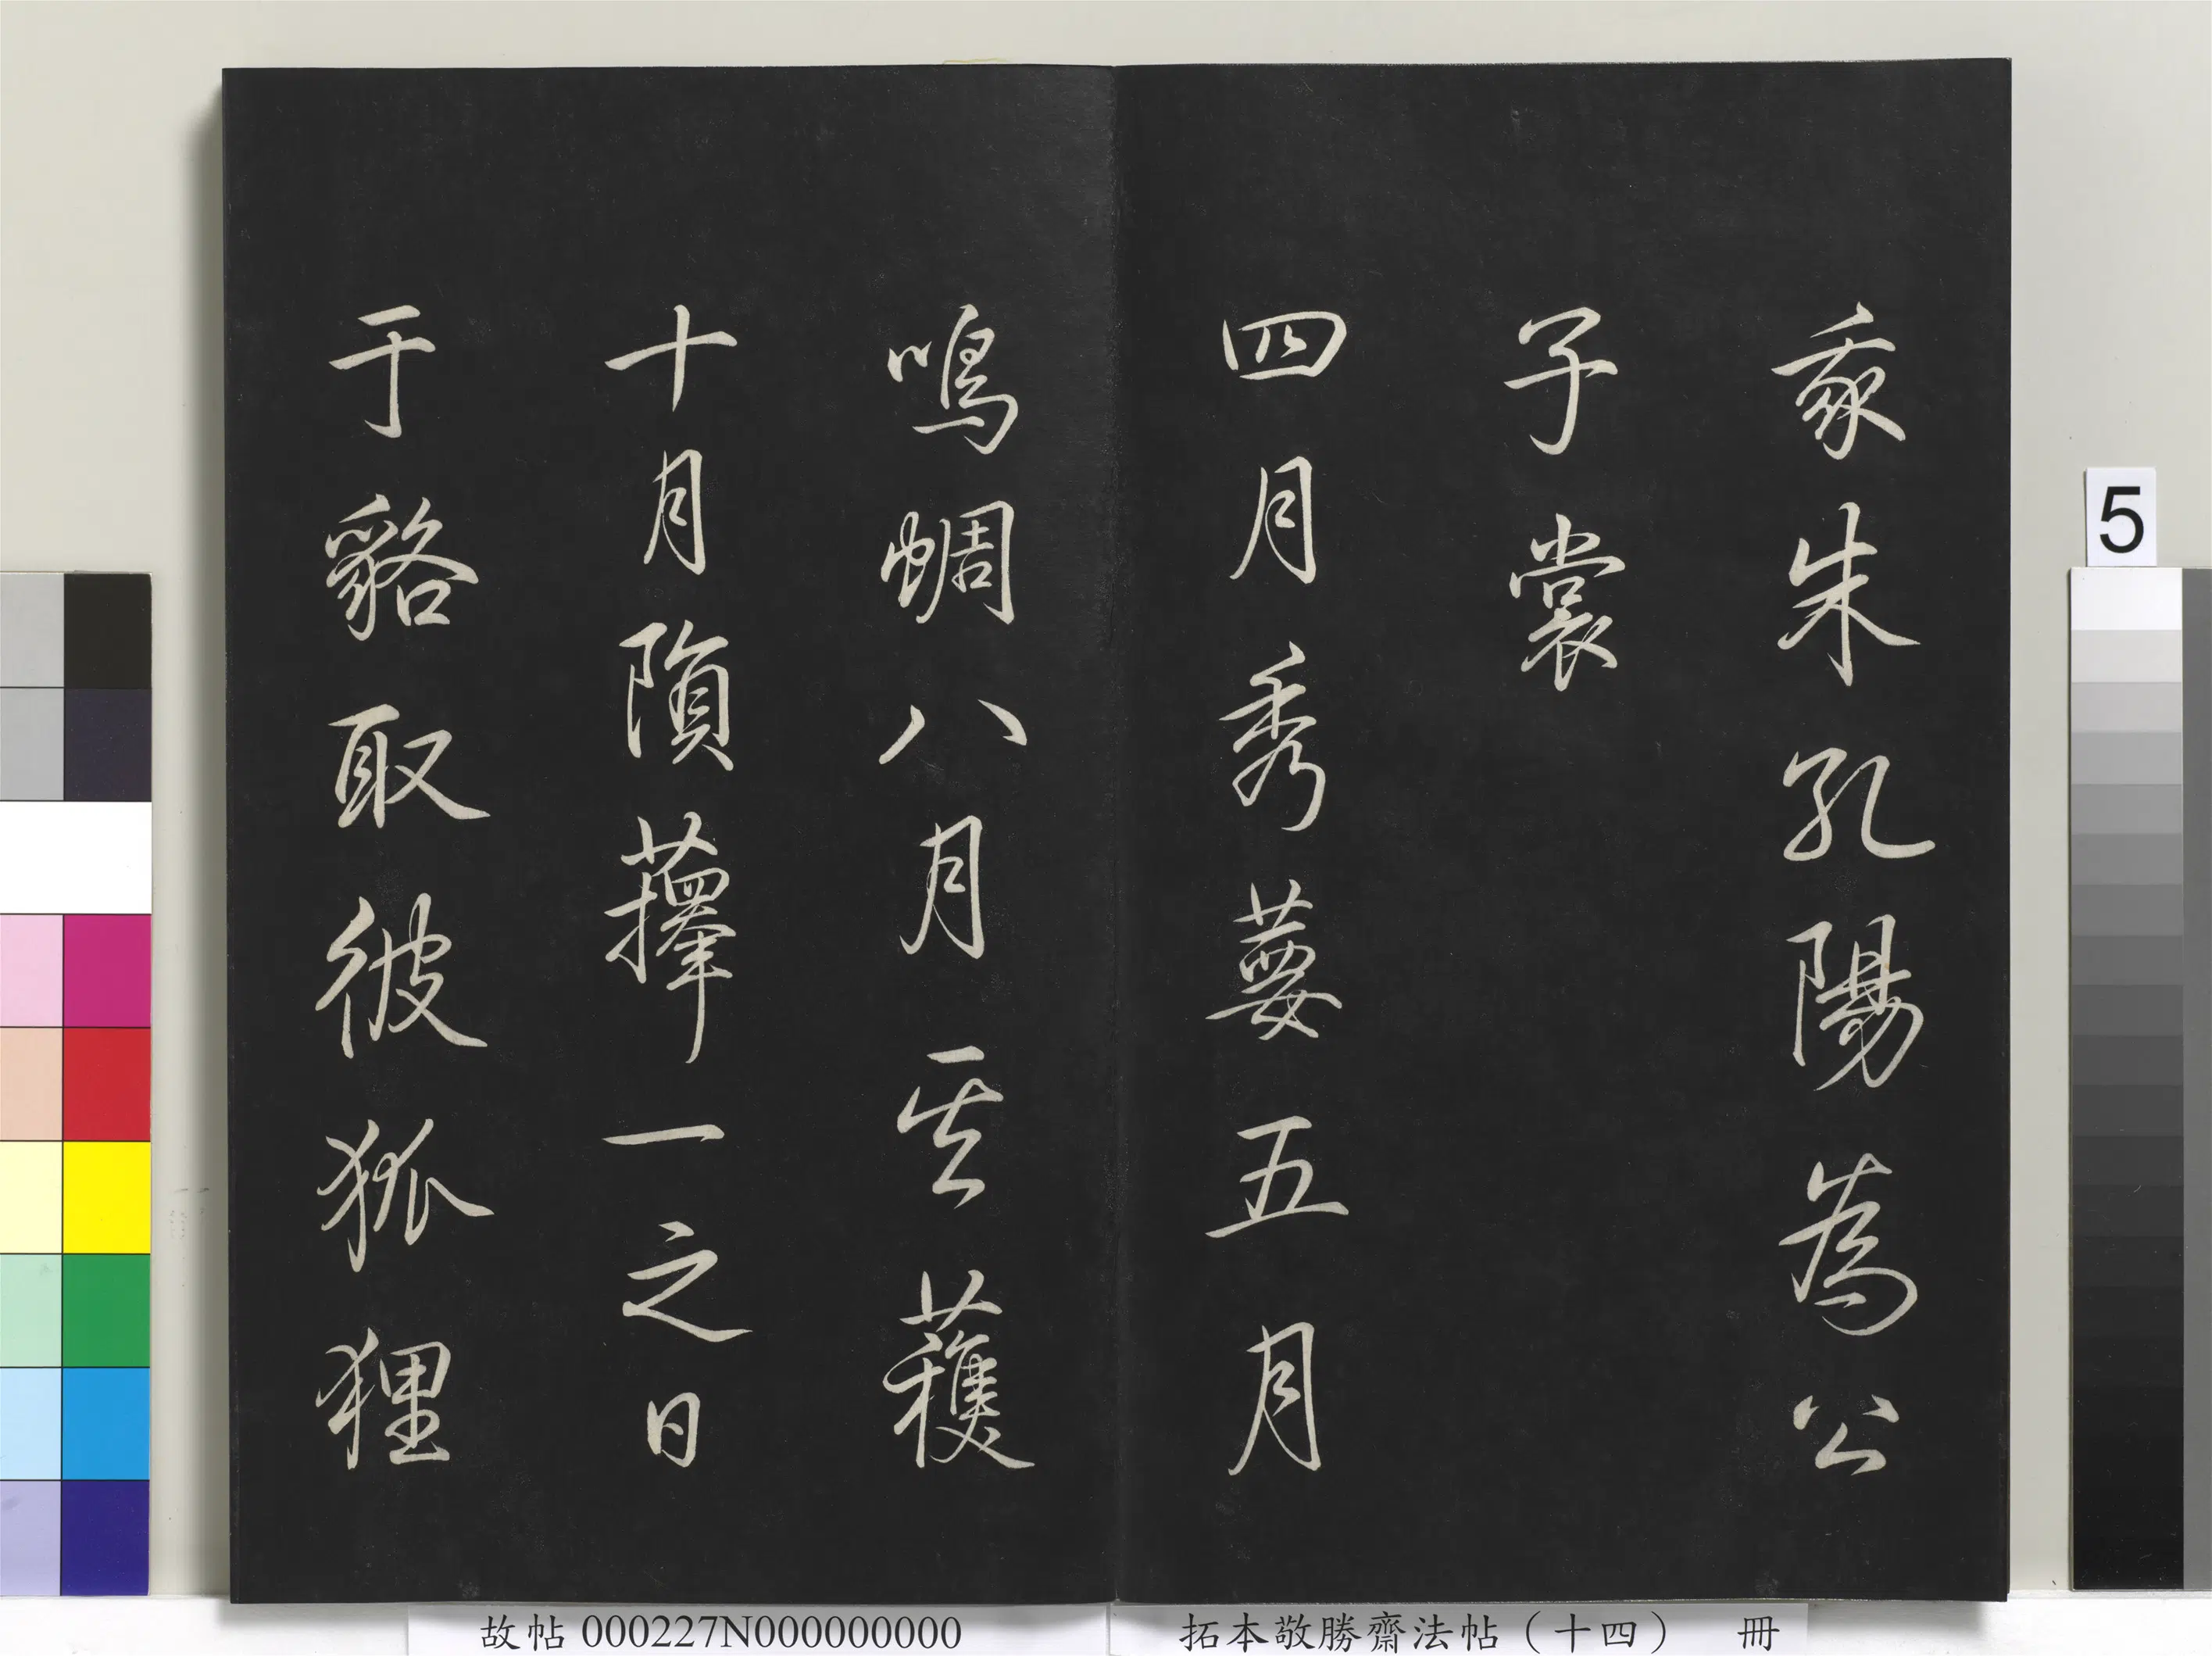 我朱孔陽為公
子裳
四月秀葽五月
鳴蜩八月其穫
十月隕蘀一之日
于貉取彼狐狸
5
故帖000227N000000000
拓本敬勝齋法帖（十四） 冊